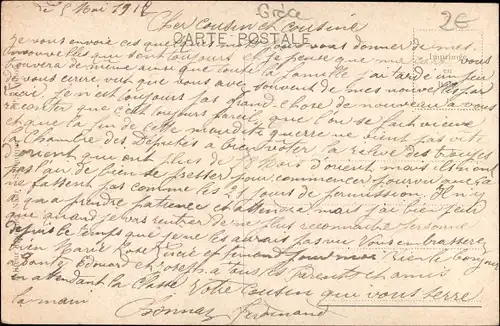 le 5 Mai 1918
Grèce
2€
Cher Cousin et Cousine
CARTE POSTALE
Je vous envoie ces quelques pour vous donner de mes
nouvelles qui sont toujours et je pense que ma vous
trouvera de même ainsi que toute la famille. J'ai tardé un peu
de vous écrire mais vous avez souvent de mes nouvelles par
Je n'ai toujours pas grand chose de nouveau à vous
raconter que c'est toujours pareil que l'on se fait vieux
et que la fin de cette maudite guerre ne vient pas vite
la Chambre des Députés a bien voter la relève des troupes
d'orient qui ont plus de 18 Mois d'orient mais ils n'ont
pas l'air de bien se presser pour commencer pourvu que sa
ne fassent pas comme les 21 jours de permission. Il n'y
a qu'à prendre patience et attendre mais j'ai bien peur
que quand je vais rentrer de ne plus reconnaitre personne
depuis le temps que je ne les aurais pas vu Vous embrasserez
bien Marie Rose et Fernand pour moi bien le bonjour
à Edouard et Joseph a tous les parents et amis
en attendant la classe Votre Cousin qui vous serre
la main
Ferdinand